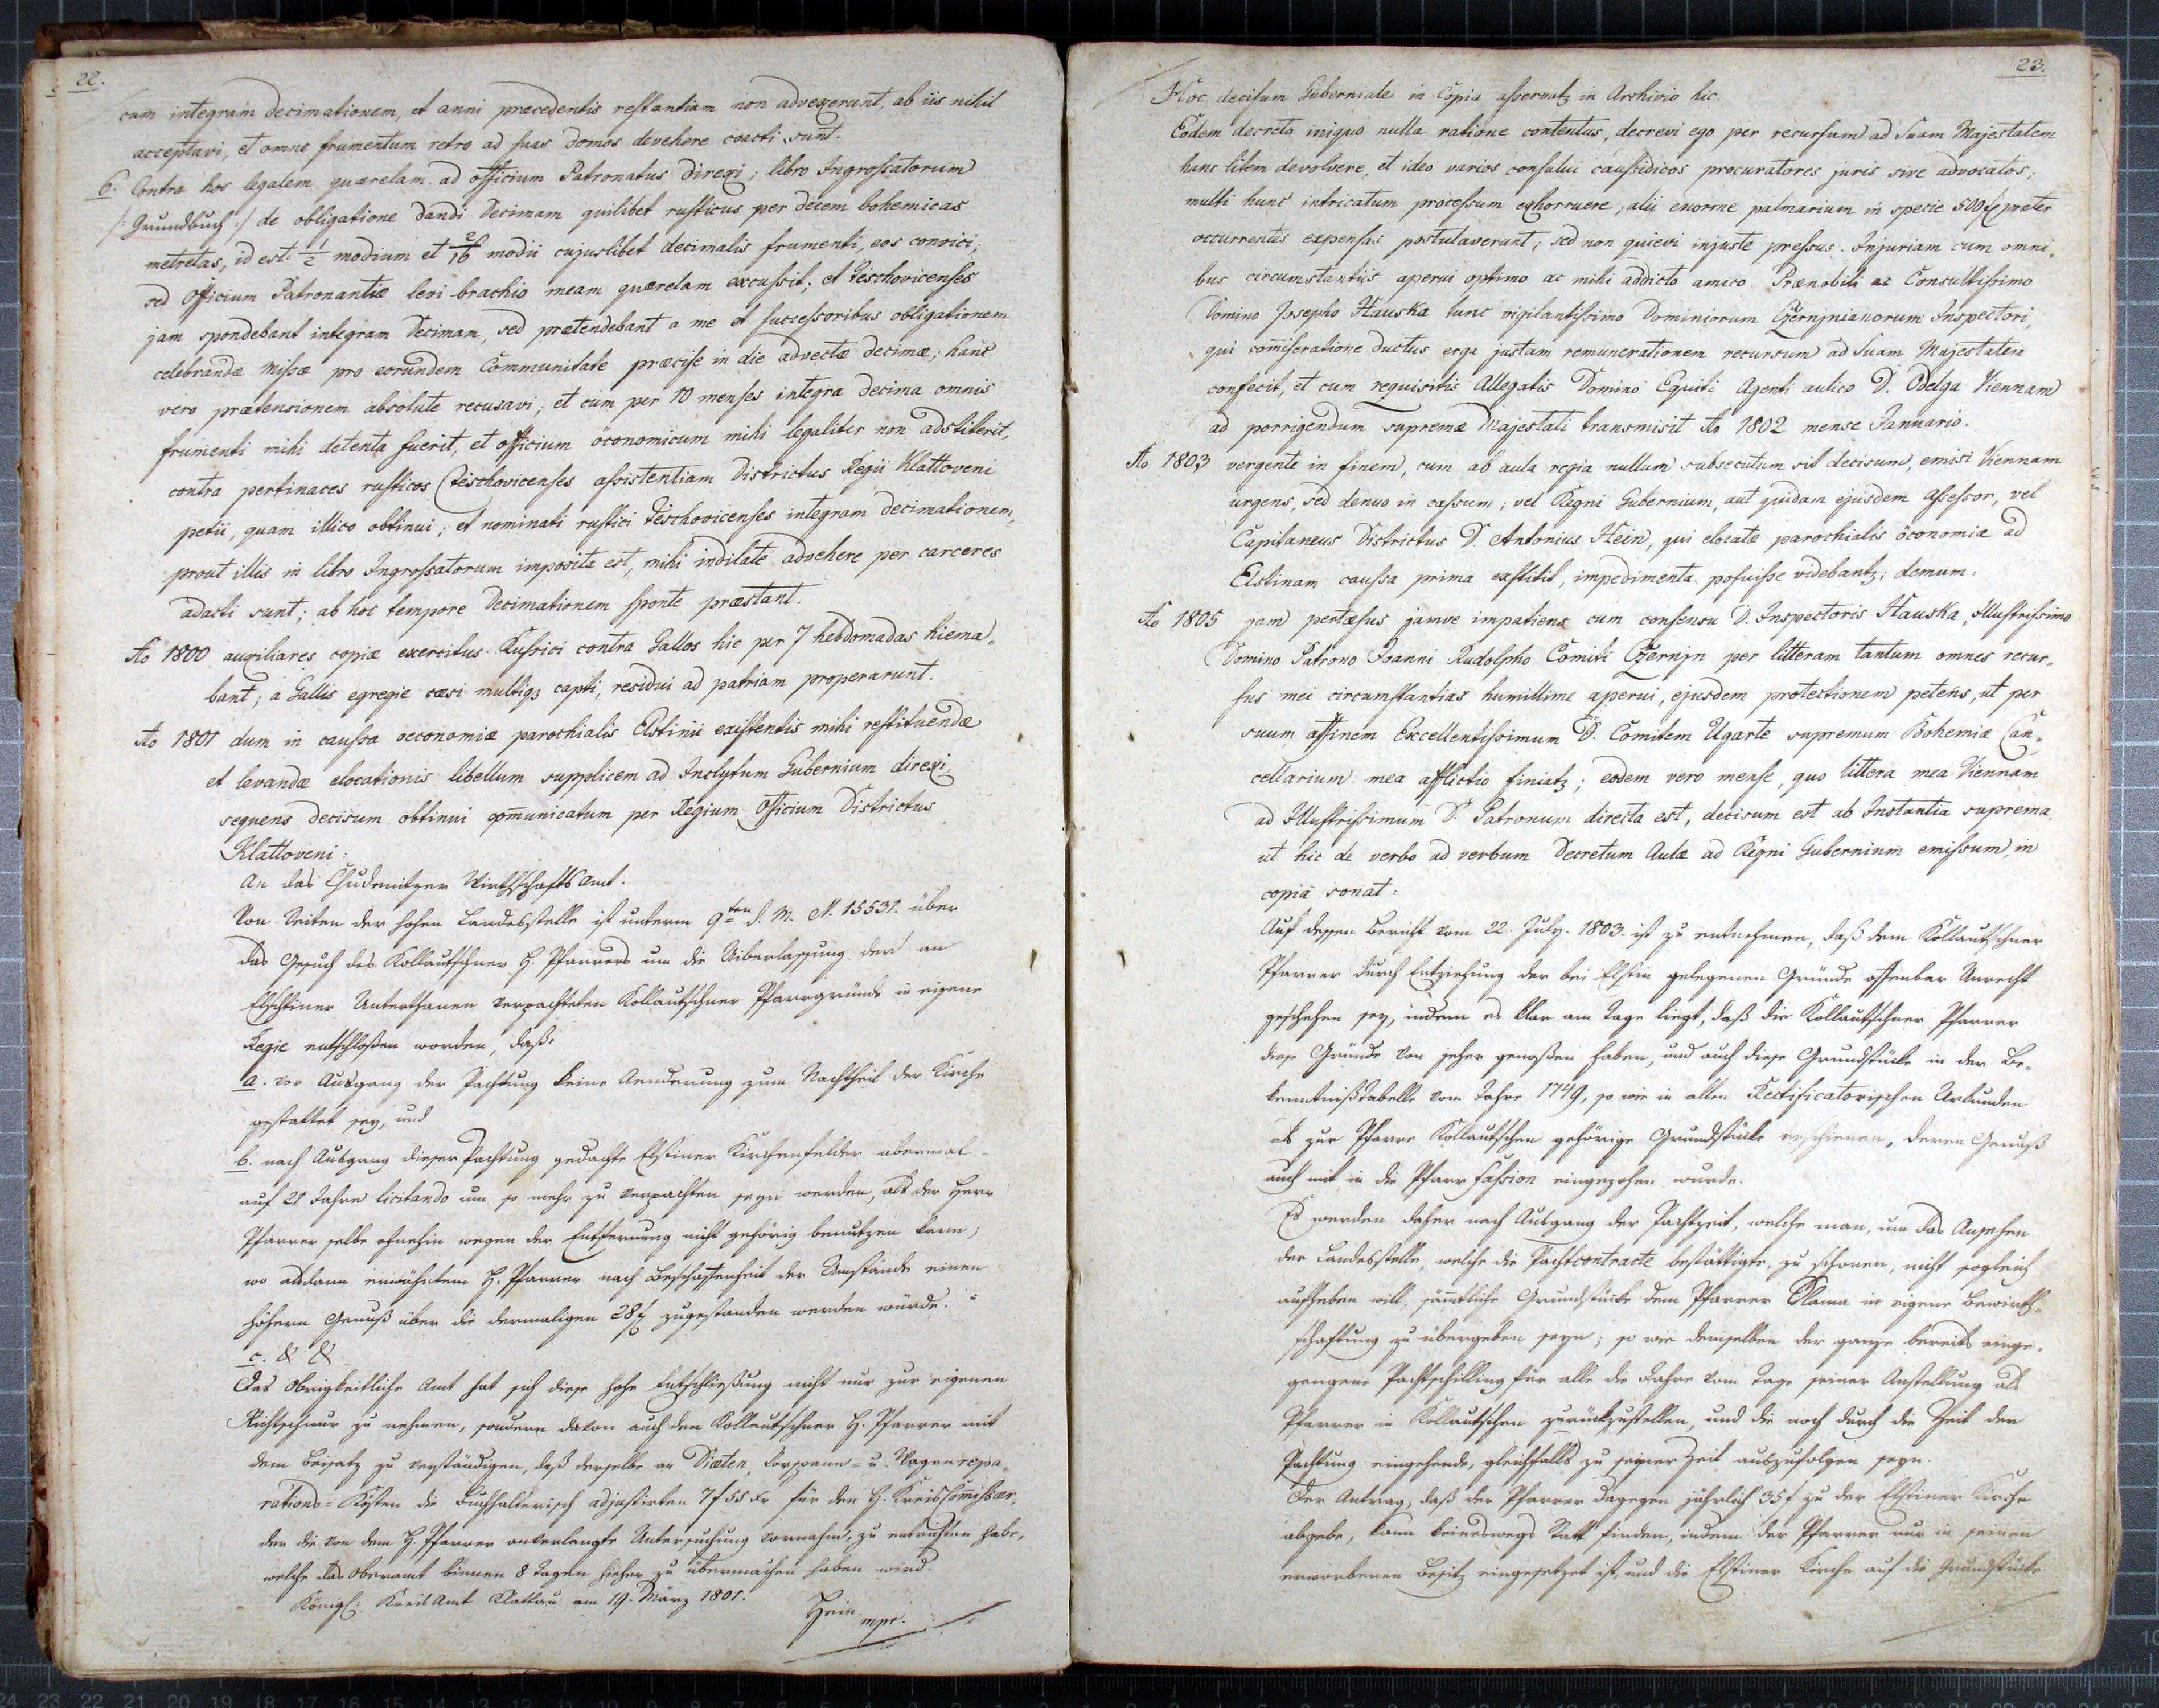 22.
cum integram decimationem, et anni præcedentis restantiam non advexerunt, ab iis nihil
acceptavi, et omne frumentum retro ad suas domos devehere coacti sunt.
6. Contra hos legalem quærelam ad officium Patronatus direxi; libro Ingrossatorum
/: Grundbuch :/ de obligatione dandi Decimam quilibet rusticus per decem bohemicas
metretas, id est: 1/2 modium et 2/16 modii cujuslibet decimalis frumenti, eos convici;
sed Officium Patronantiæ levi brachio meam quærelam excussit; et Teschovicenses
jam spondebant integram Decimam, sed prætendebant a me et successoribus obligationem
celebrandæ Missæ pro eorundem Communitate præcise in die advectæ decimæ; hanc
vero prætensionem absolute recusavi; et cum per 10 menses integra decima omnis
frumenti mihi detenta fuerit, et officium öconomicum mihi legaliter non adstiterit,
contra pertinaces rusticos Teschovicenses assistentiam Districtus Regii Klattoveni
petii, quam illico obtinui; et nominati rustici Teschovicenses integram decimationem,
prout illis in libro Ingrossatorum imposita est, mihi indilate advehere per carceres
adacti sunt; ab hoc tempore Decimationem sponte præstant.
Ao 1800 auxiliares copiæ exercitus Russici contra Gallos hic per 7 hebdomadas hiema„
bant; a Gallis egregie cæsi multiq3 capti, residui ad patriam properarunt.
Ao 1801 dum in caussa oeconomiæ parochialis Elstinii existentis mihi restituendæ
et levandæ elocationis libellum supplicem ad Inclytum Gubernium direxi,
sequens decisum obtinui com̄unicatum per Regium Officium Districtus
Klattoveni:
An das Chudenitzer Wirthschaftsamt.
Von Seiten der hohen Landesstelle ist unterm 9ten d. M. N. 15531. über
das Gesuch des Kollautschner H. Pfarrers um die Uiberlassung der an
Elschtiner Unterthanen verpachteten Kollautschner Pfarrgründe in eigene
Regie entschlossen worden, daß:
a. vor Ausgang der Pachtung keine Aenderung zum Nachtheil der Kirche
gestattet sey, und
b. nach Ausgang dieser Pachtung gedachte Elstiner Kirchenfelder abermal
auf 21 Jahre licitando um so mehr zu verpachten seyn werden, als der Herr
Pfarrer selbe ohnehin wegen der Entfernung nicht gehörig benutzen kann;
wo alsdann erwähntem H. Pfarrer nach Beschaffenheit der Umstände einen
höhern Genuß über die dermaligen 28 f zugestanden werden würde.
c. & &
Das Obrigkeitliche Amt hat sich diese hohe Entschließung nicht nur zur eigenen
Richtschnur zu nehmen, sondern davon auch den Kollautschner H. Pfarrer mit
dem Beisatz zu verständigen, daß derselbe an Diæten, Vorspann= u. Wagenrepa„
rations=Kösten die buchhalterisch adjustirten 7 f 55 xr für den H. Kreiskom̄issær,
der die von dem H. Pfarrer anverlangte Untersuchung vornahm, zu entrichten habe,
welche das Oberamt binnen 8 Tagen hieher zu übermachen haben wird.
Königl: Kreis Amt Klattau am 19. März 1801.
Hein mpr.
23.
Hoc decisum Guberniale in Copia asservatz in Archivio hic.
Eodem decreto iniquo nulla ratione contentus, decrevi ego per recursum ad Suam Majestatem
hanc litem devolvere, et ideo varios consului caussidicos procuratores juris sive advocatos;
multi hunc intricatum processum exhorruere; alii enorme palmarium in specie 500 f præter
occurrentes expensas postulaverunt; sed non quievi injuste pressus. Injuriam cum omni„
bus circumstantiis aperui optimo ac mihi addicto amico Prænobili ac Consultissimo
Domino Josepho Hauska tunc vigilantissimo Dominiorum Czerninianorum Inspectori,
qui com̄iseratione ductus erga justam remunerationem recursum ad Suam Majestatem
confecit, et cum requisitis Allegatis Domino Equiti Agenti aulico D. Odelga Viennam
ad porrigendum supremæ Majestati transmisit Ao 1802 mense Januario.
Ao 1803 vergente in finem, cum ab aula regia nullum subsecutum sit decisum, emisi Viennam
urgens, sed denuo in cassum; vel Regni Gubernium, aut quidam ejusdem Assessor, vel
Capitaneus Districtus D. Antonius Hein, qui elocatæ parochialis öconomiæ ad
Elstinam caussa prima exstitit, impedimenta posuisse videbantz; demum.
Ao 1805 jam pertæsus jamve impatiens cum consensu D. Inspectoris Hauska, Illustrissimo
Domino Patrono Joanni Rudolpho Comiti Czernjn per litteram tantum omnes recur„
sus mei circumstantias humillime aperui, ejusdem protectionem petens, ut per
suum affinem Excellentissimum D. Comitem Ugarte supremum Bohemiæ Can„
cellarium mea afflictio finiatz; eodem vero mense, quo littera mea Viennam
ad Illustrissimum D. Patronum directa est, decisum est ab Instantia suprema,
ut hic de verbo ad verbum Decretum Aulæ ad Regni Gubernium emissum, in
copia sonat:
Auf dessen Bericht vom 22. July. 1803. ist zu entnehmen, daß dem Kollautschner
Pfarrer durch Entziehung der bei Elstin gelegenen Gründe offenbar Unrecht
geschehen sey, indem es klar am Tage liegt, daß die Kollautschner Pfarrer
diese Gründe von jeher genossen haben, und auch diese Grundstücke in der Be„
kenntnißtabelle vom Jahre 1749, so wie in allen Rectificatorischen Urkunden
als zur Pfarre Kollautschen gehörige Grundstücke erschienen, deren Genuß
auch mit in die Pfarr Fassion eingezohen wurde.
Es werden daher nach Ausgang der Pachtzeit, welche man, um das Ansehen
der Landesstelle, welche die Pachtcontracte bestättigte, zu schonen, nicht sogleich
aufheben will, säm̄tliche Grundstücke dem Pfarrer Slama in eigene Bewirth„
schaftung zu übergeben seyn; so wie demselben der ganze bereits einge„
gangene Pachtschilling für alle die Jahre vom Tage seiner Anstellung als
Pfarrer in Kollautschen zurückzustellen, und die noch durch die Zeit der
Pachtung eingehende, gleichfalls zu seiner Zeit auszufolgen seyn.
Der Antrag, daß der Pfarrer dagegen jährlich 35 f zu der Elstiner Kirche
abgebe, kann keineswegs Statt finden, indem der Pfarrer nur in seinen
erworbenen Besitz eingesetzet ist, und die Elstiner Kirche auf die Grundstücke